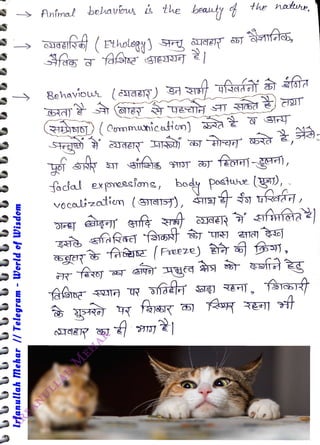 → Animal behaviour is the beauty of the nature.
→ व्यवहारिकी (Ethology) जन्तु व्यवहार का वैज्ञानिक,
जैविक व विशिष्ट अध्ययन है।
→ Behaviour (व्यवहार) उन सभी परिवर्तनों को इंगित
करता है जो बाहर से पहचाने जा सकते हैं तथा
(सम्प्रेषण) (Communication) करते हैं व अन्य
जन्तुओं में व्यवहार का मोचन करते है, जैसे:-
पूर्ण शरीर या आंशिक भाग का हिलना-डुलना,
facial expressions, body posture (मुद्रा),
vocalization (आवाज), साथ ही रंग परिवर्तन,
गन्ध छोड़ना आदि सभी व्यवहार में शामिलित है।
इसके अतिरिक्त शिकारी को पास आता देख
कबूतर के निश्चेष्ट (Freeze) होने की क्रिया,
नर हिरण का अपने प्रभुत्व क्षेत्र को दर्शाने हेतु
विशिष्ट स्थान पर गतिहीन खड़ा रहना, शिकारी
के गुजरने पर शिकार का स्थिर रहना भी
व्यवहार का ही भाग है।
Irfanullah Mehar // Telegram - World of Wisdom
IRFANULLAH MEHAR